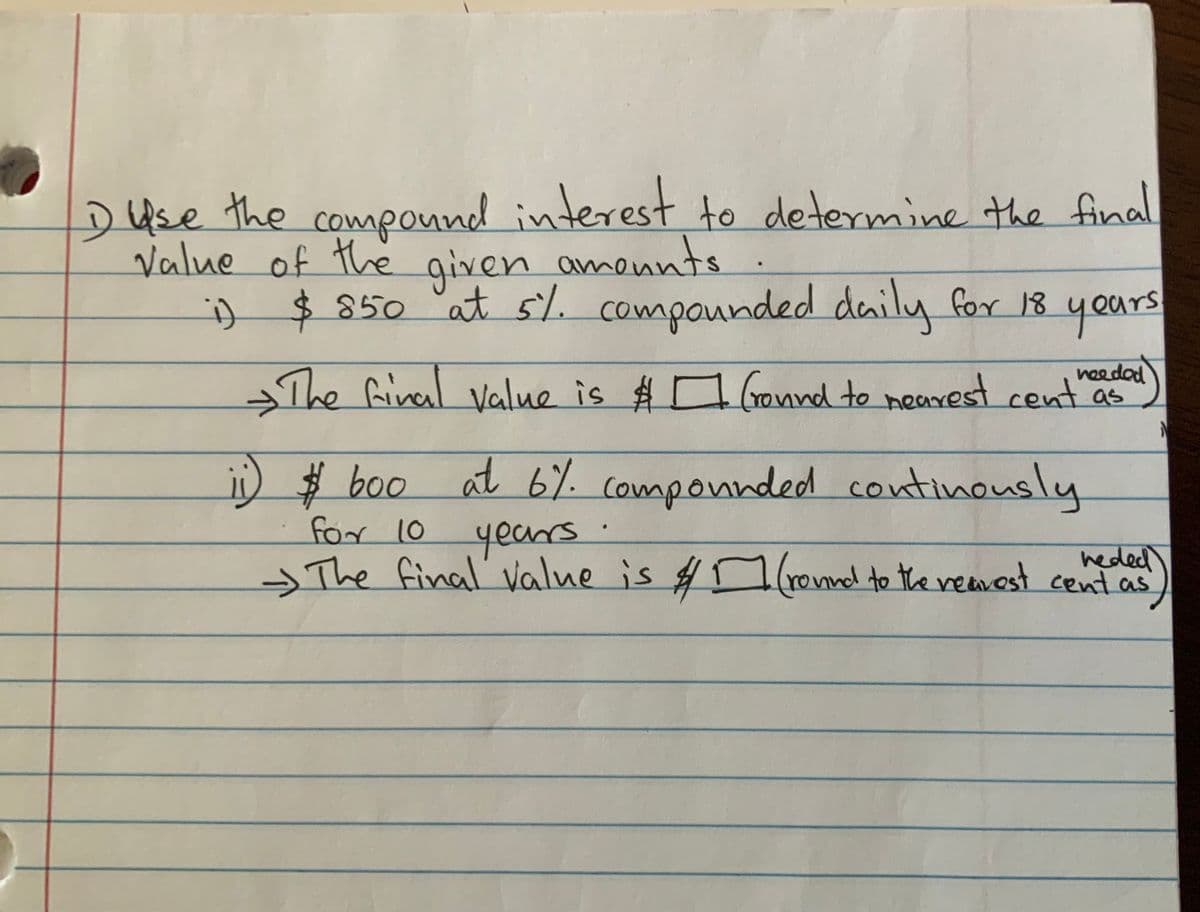 1) Use the compound interest to determine the final
Value of the given amounts .
i) $ 850 at 5%. compounded daily for 18 years
→ The final value is $ □ (round to nearest cent as needed)
ii) $ 600 at 6%. compounded continously
for 10 years .
→ The final value is $ □ (round to the nearest cent as neded)